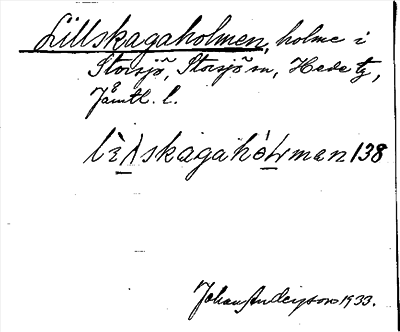 Lillskagaholmen, holme i
Storsjö, Storsjö sn, Hede tg,
Jämtl. l.
138
Johan Anderson 1933.